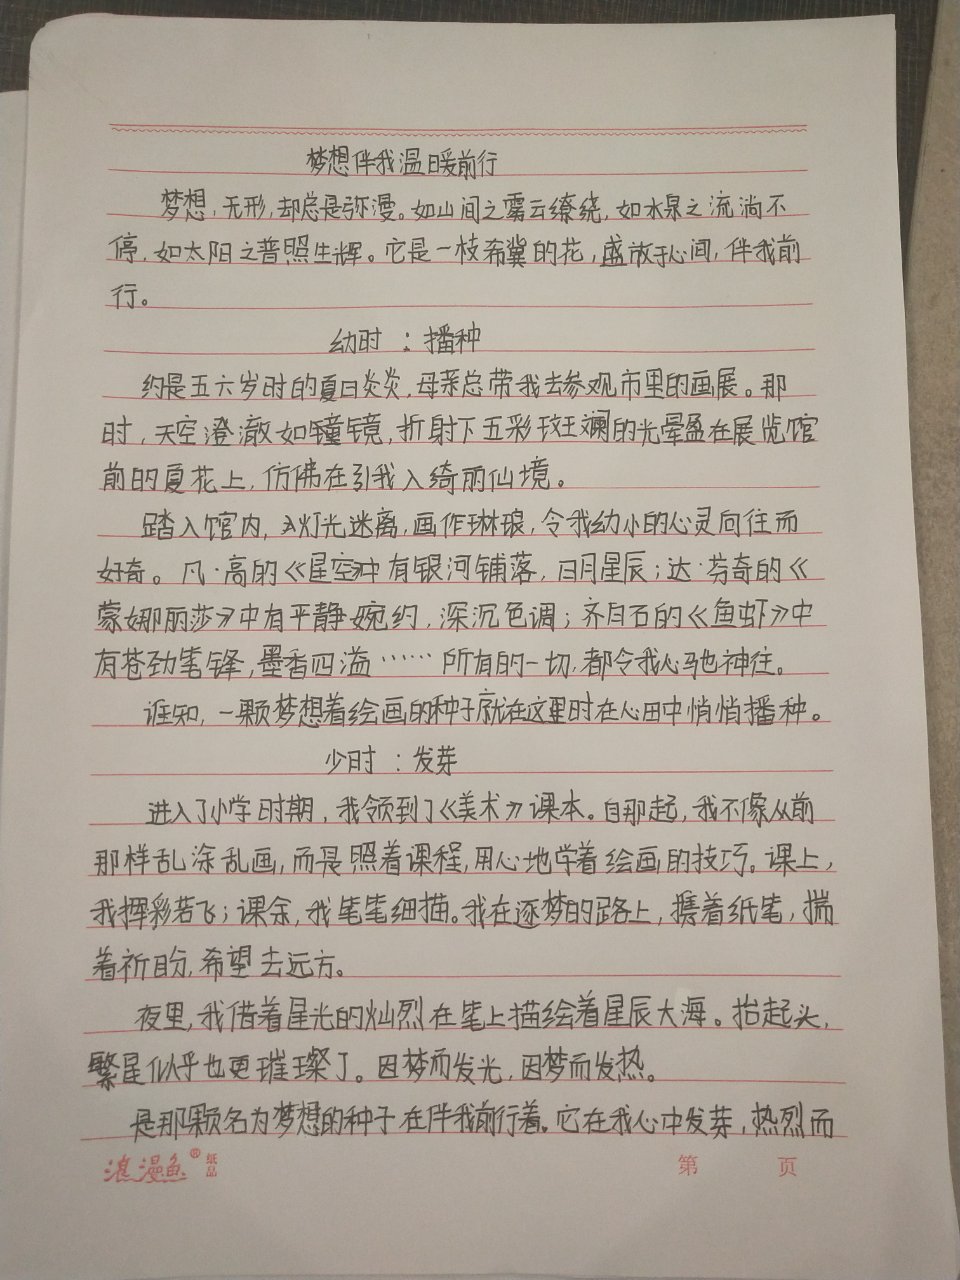 梦想伴我温暖前行
梦想，无形，却总是弥漫。如山间之雾云缭绕，如水泉之流淌不
停，如太阳之普照生辉。它是一枝希冀的花，盛放于心间，伴我前
行。
幼时：播种
约是五六岁时的夏日炎炎，母亲总带我去参观市里的画展。那
时，天空澄澈如瞳镜，折射下五彩斑斓的光晕盈在展览馆
前的夏花上，仿佛在引我入绮丽仙境。
踏入馆内，灯光迷离，画作琳琅，令我幼小的心灵向往而
好奇。凡·高的《星空》中有银河铺落，日月星辰；达·芬奇的《
蒙娜丽莎》中有平静婉约，深沉色调；齐白石的《鱼虾》中
有苍劲笔锋，墨香四溢……所有的一切，都令我心驰神往。
谁知，一颗梦想着绘画的种子就在这里时在心田中悄悄播种。
少时：发芽
进入了小学时期，我领到了《美术》课本。自那起，我不像从前
那样乱涂乱画，而是照着课程，用心地学着绘画的技巧。课上，
我挥彩若飞；课余，我笔笔细描。我在逐梦的路上，携着纸笔，揣
着祈盼，希望去远方。
夜里，我借着星光的灿烈在笔上描绘着星辰大海。抬起头，
繁星似乎也更璀璨了。因梦而发光，因梦而发热。
是那颗名为梦想的种子在伴我前行着。它在我心中发芽，热烈而
浪漫鱼® 纸品 第 页